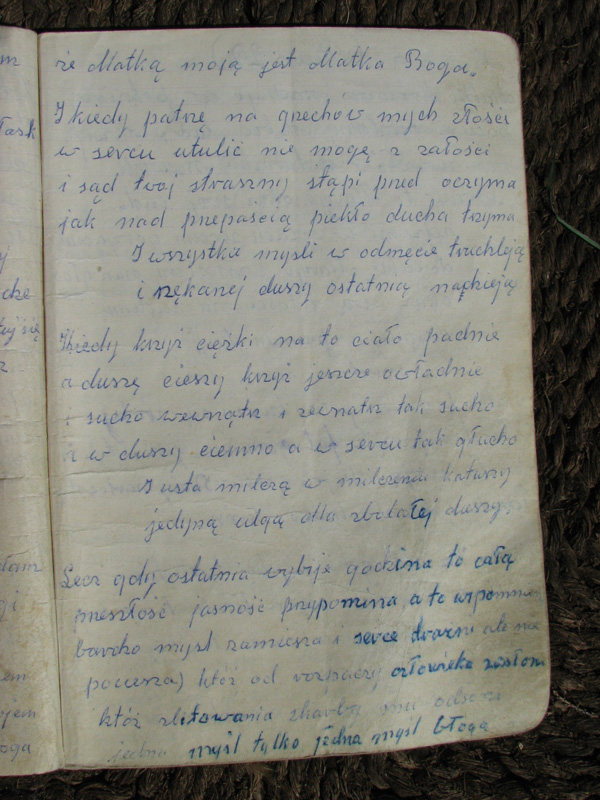 że Matką moją jest Matka Boga.
I kiedy patrzę na grzechów mych złości
w sercu utulić nie mogę z żałości
i sąd twój straszny stąpi przed oczyma
jak nad przepaścią piekło ducha trzyma
I wszystkie myśli w odmęcie truchleją
i nękanej duszy ostatnią nadzieją
I kiedy krzyż ciężki na to ciało padnie
a duszę cięszy krzyż jeszcze owładnie
i sucho wewnątrz i zewnatrz tak sucho
i w duszy ciemno a w sercu tak głucho
I usta milczą w milczeniu katuszy
jedyną ulgą dla zbolałej duszy.
Lecz gdy ostatnia wybije godzina to całą
przeszłość jasność przypomina, a to wspomnie
bardzo myśl zamiesza i serce drażni ale nie
pociesza) któż od rozpaczy człowieka zasłoni
któż zlitowania skarby mu odsłoni
jedna myśl tylko jedna myśl błoga
łask
dze